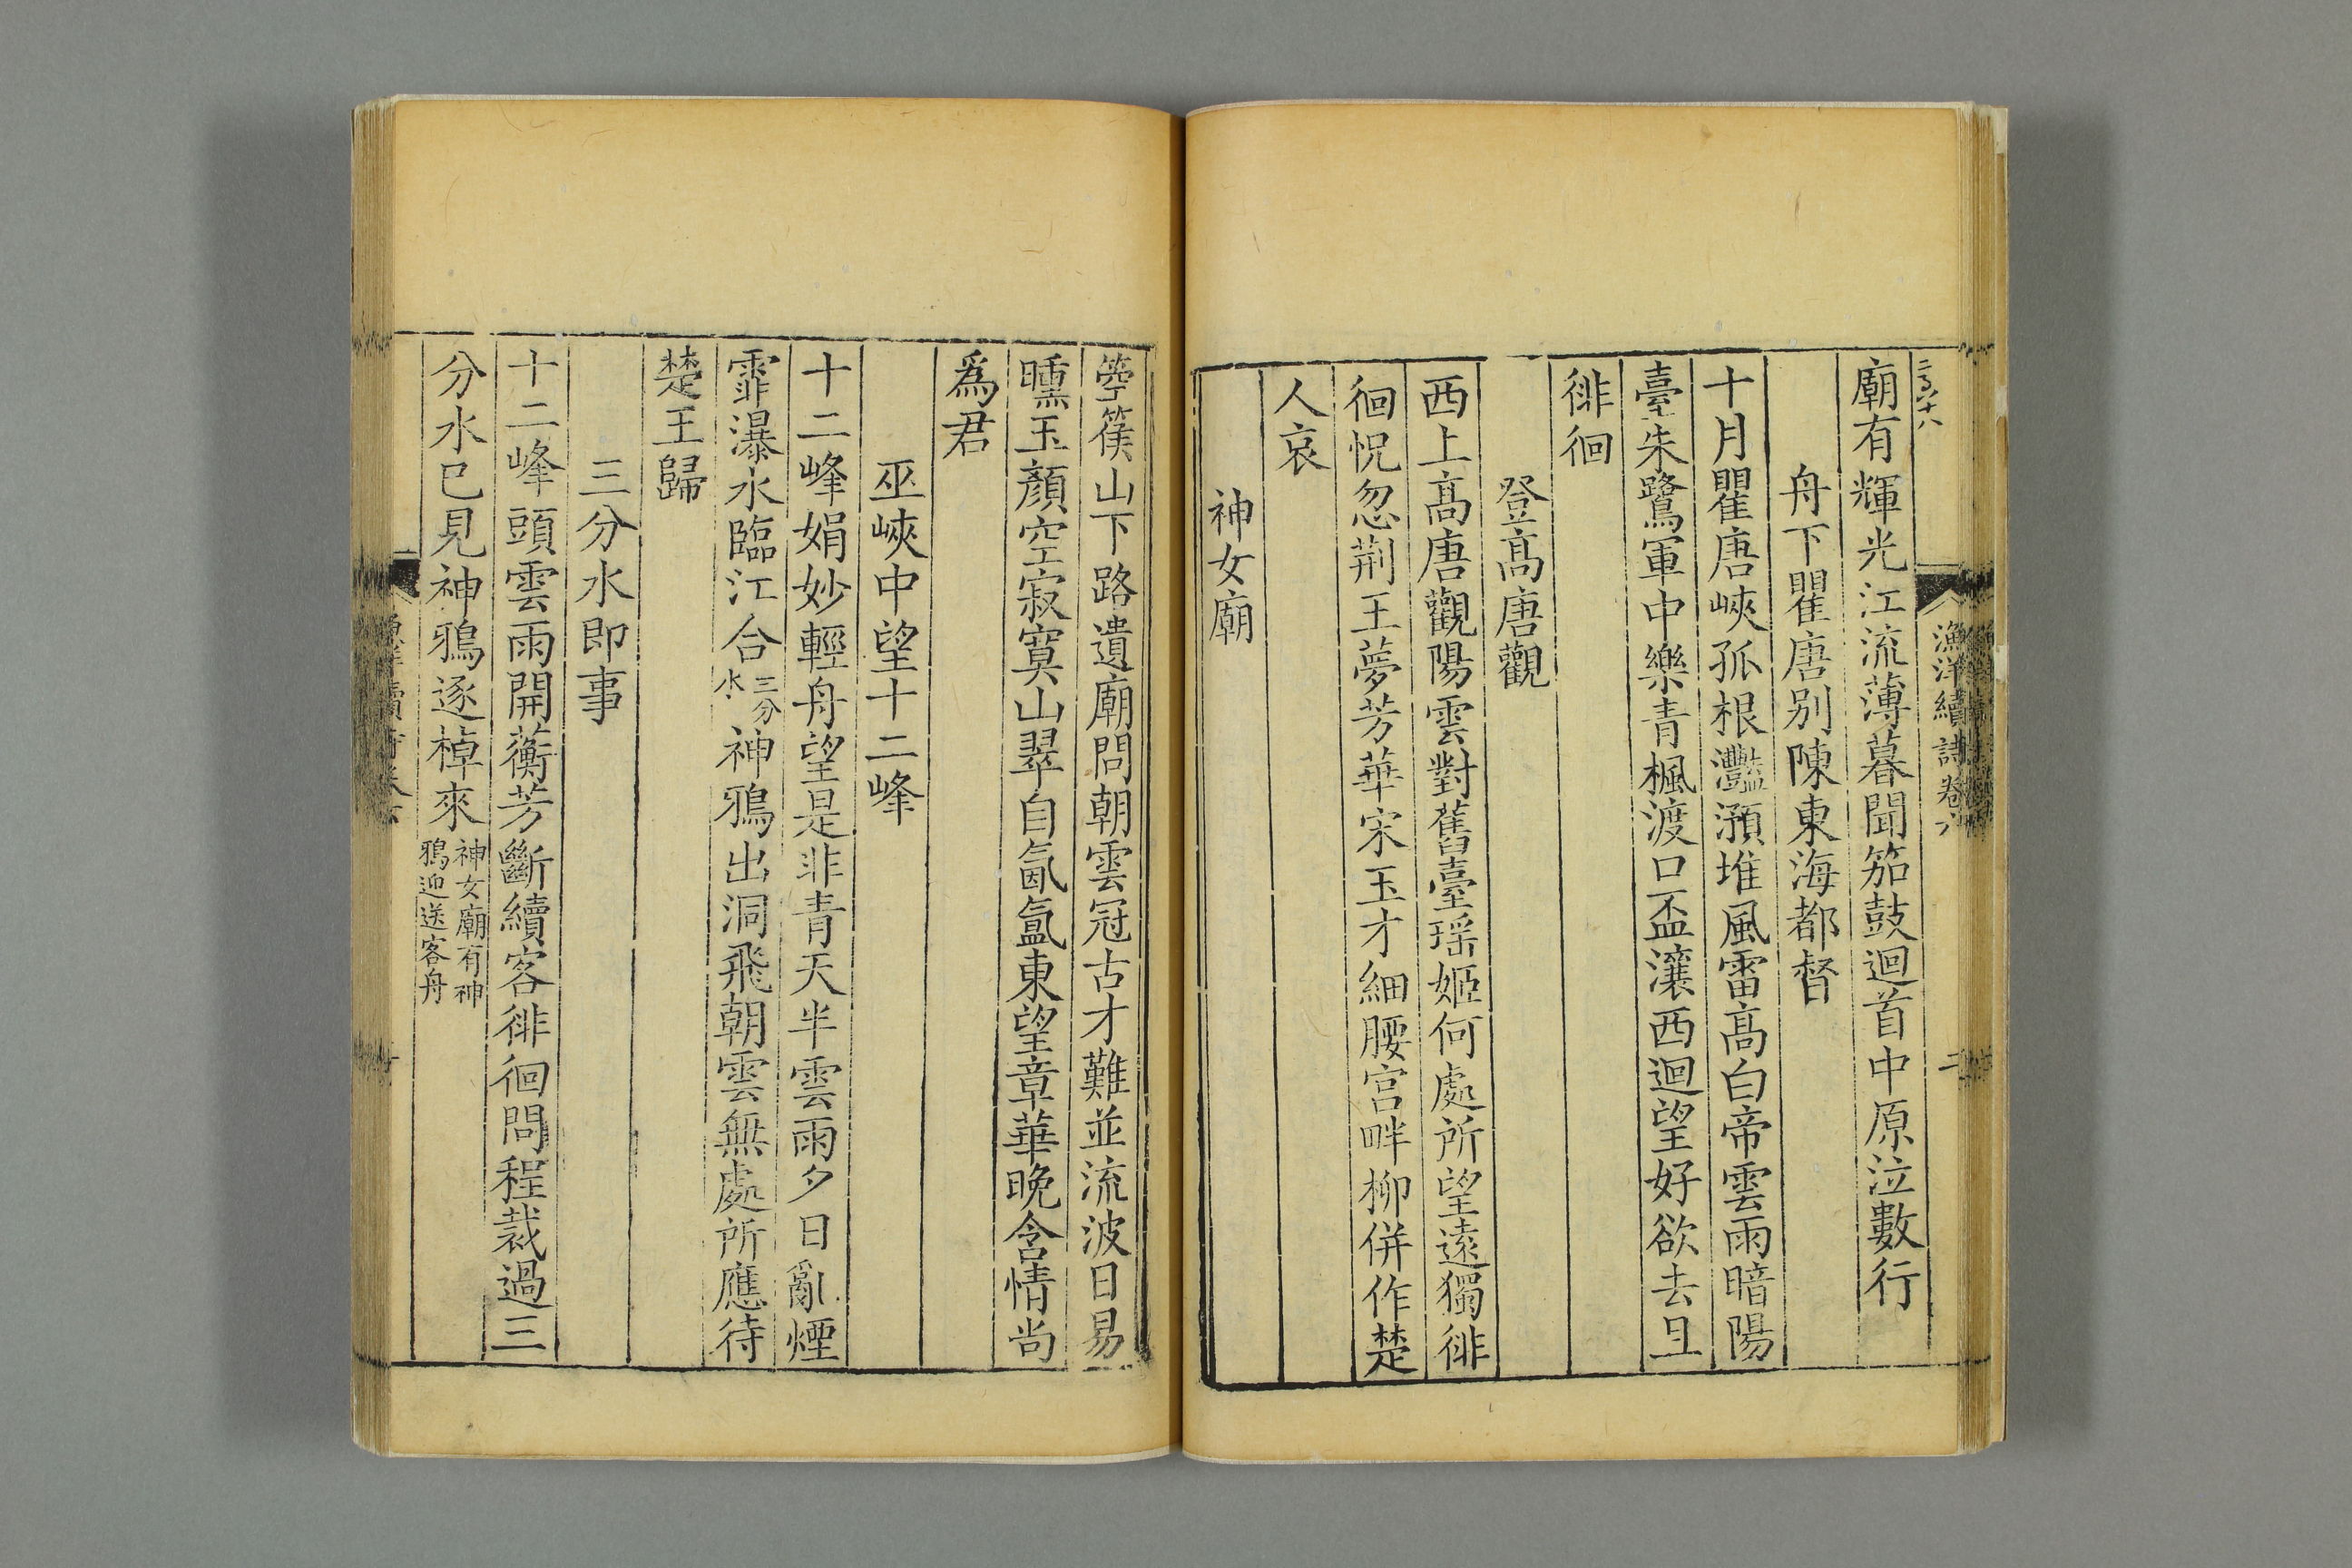 廟有輝光江流薄暮聞笳鼓迴首中原泣數行
舟下瞿唐别陳東海都督
十月瞿唐峽孤根灩澦堆風雷高白帝雲雨暗陽
臺朱鷺軍中樂青楓渡口盃瀼西迴望好欲去且
徘徊
登高唐觀
西上高唐觀陽雲對舊臺瑶姬何處所望遠獨徘
徊怳忽荆王夢芳華宋玉才細腰宫畔柳併作楚
人哀
神女廟
箜篌山下路遺廟問朝雲冠古才難並流波日易
曛玉顔空寂寞山翠自氤氲東望章華晚含情尚
爲君
巫峽中望十二峰
十二峰娟妙輕舟望是非青天半雲雨夕日亂煙
霏瀑水臨江合三分水神鴉出洞飛朝雲無處所應待
楚王歸
三分水即事
十二峰頭雲雨開蘅芳斷續客徘徊問程裁過三
分水已見神鴉逐棹來神女廟有神鴉迎送客舟
漁洋續詩卷六
二